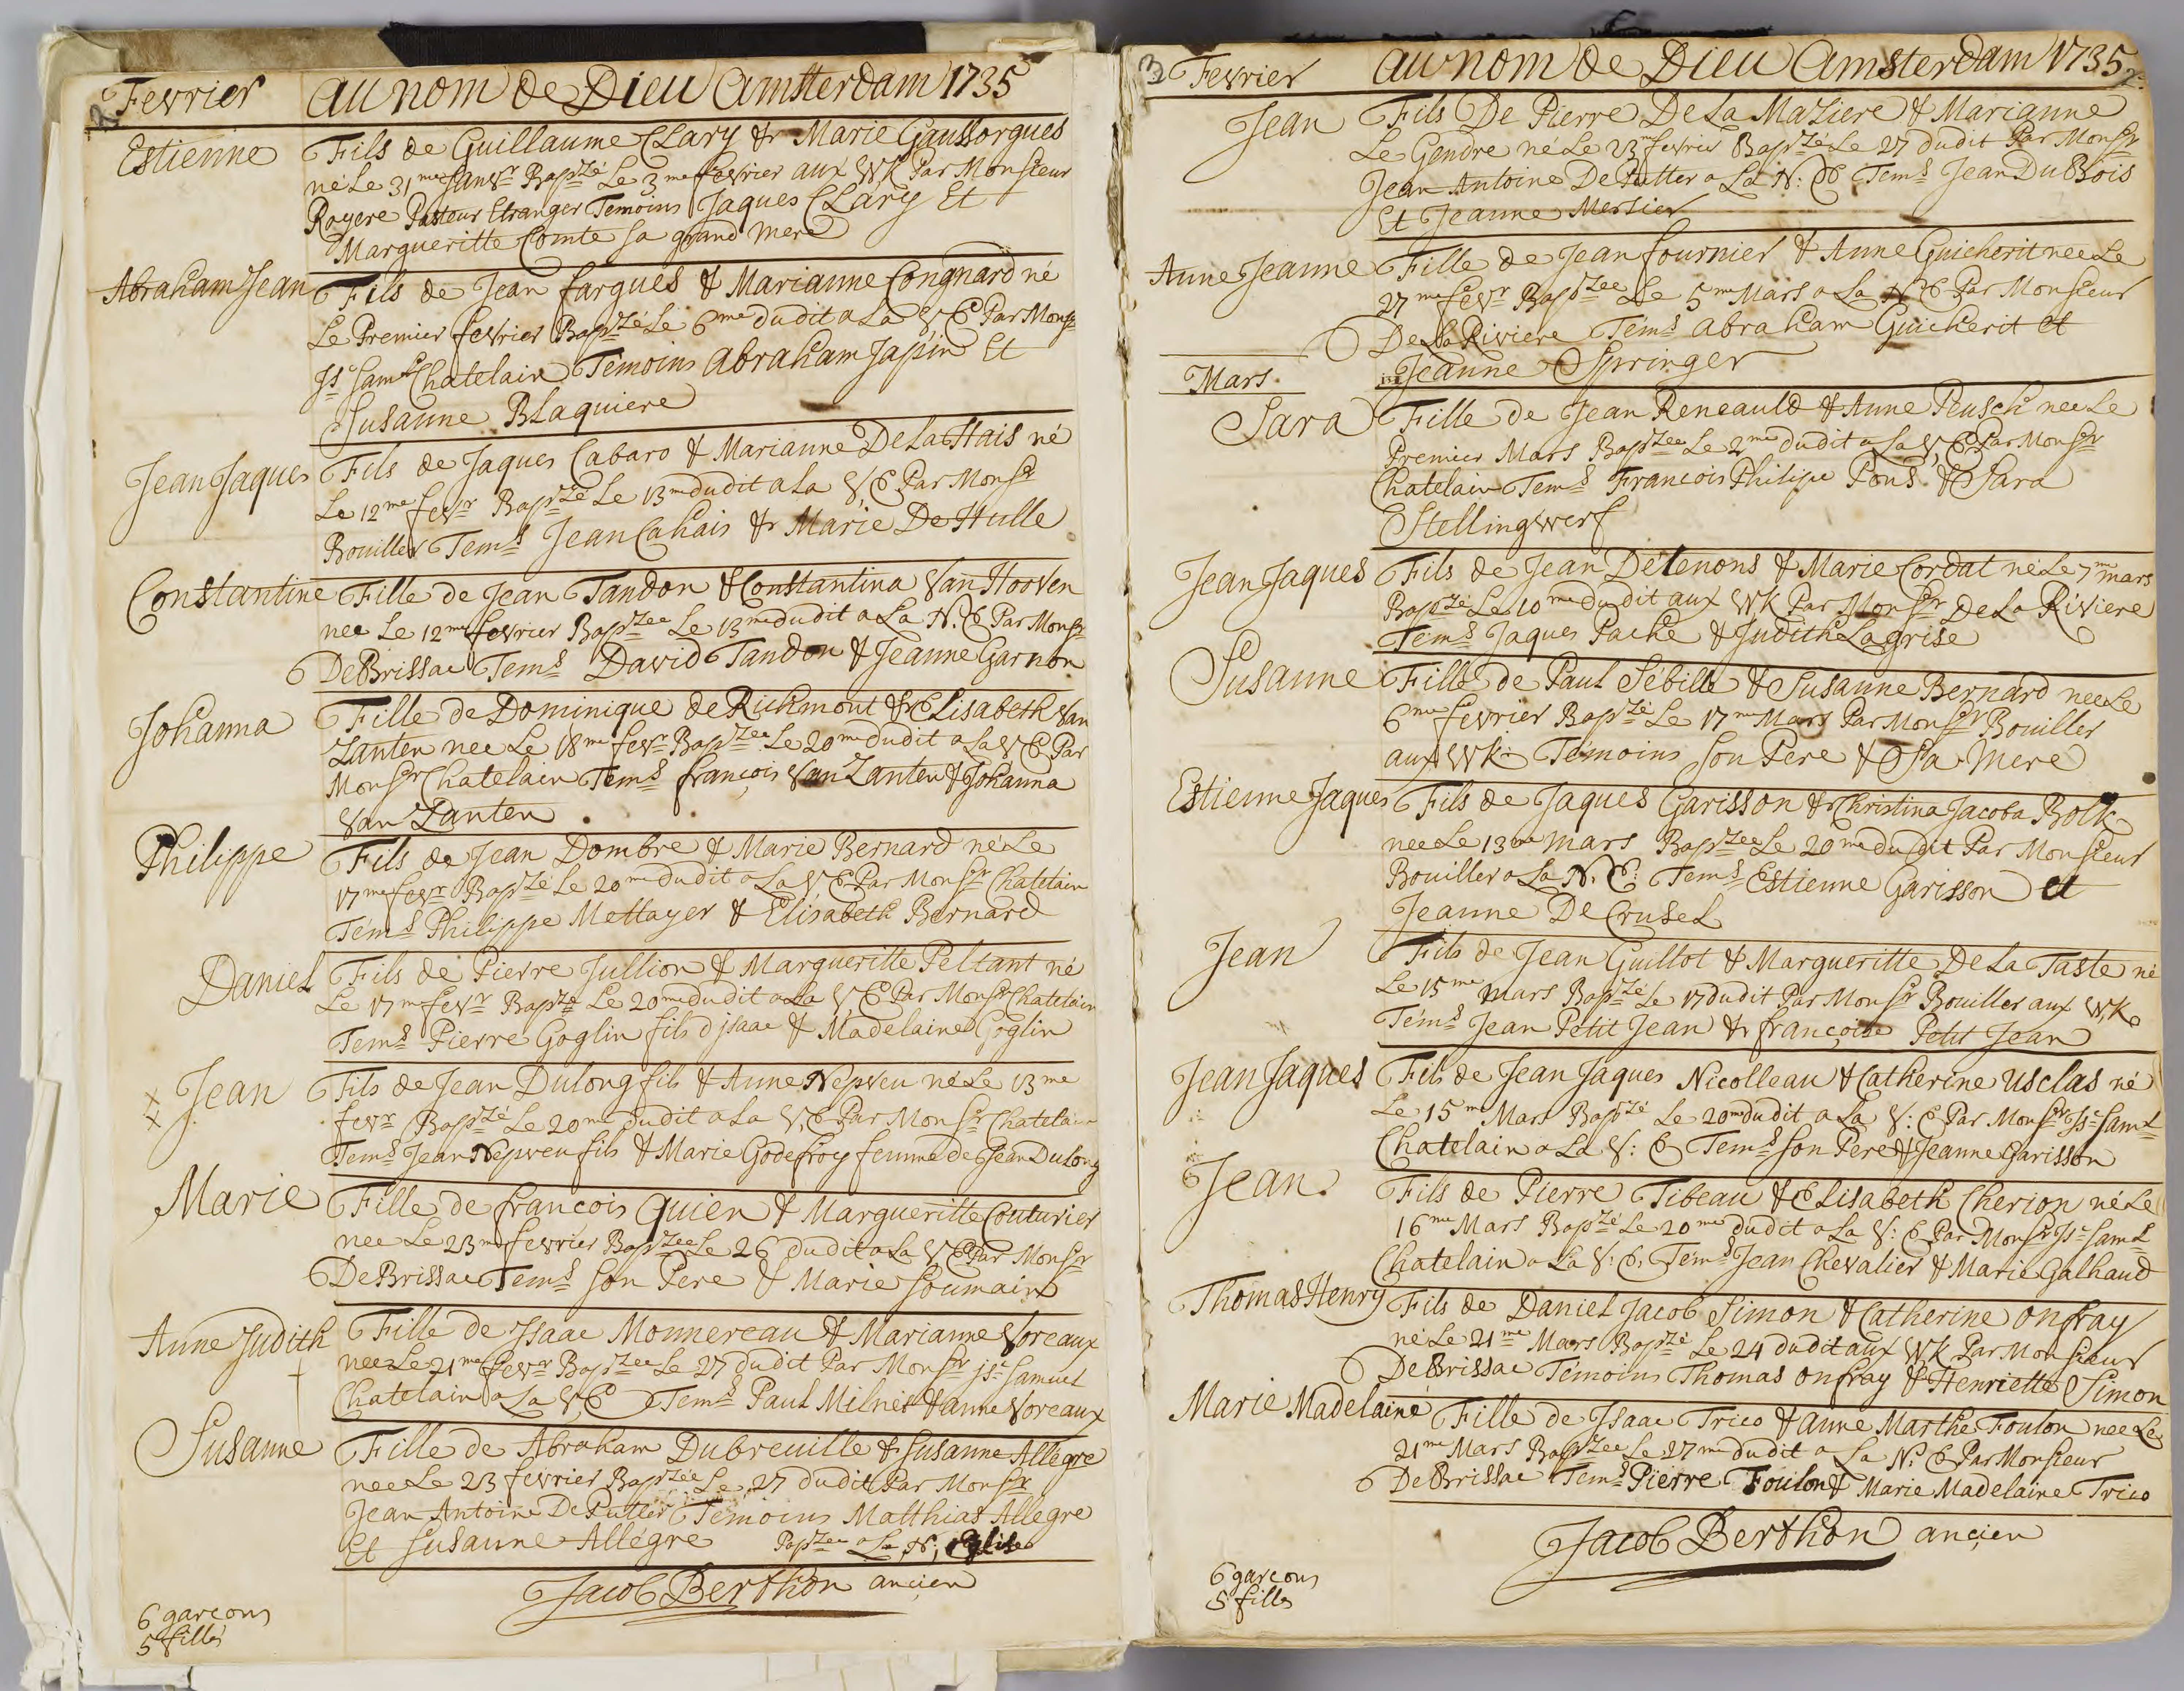 2
Fevrier
au nom de Dieu Amsterdam 1735
Estienne
Fils de Guillaume Clary & Marie Gaussorgues
né Le 31me Janvr Bapzé Le 3me fevrier aux WK Par Monsieur
Royere Pasteur Etranger Temoins Jaques Clary Et
Margueritte Comte sa grand mere
Abraham Jean
Fils de Jean fargues & Marianne Congnard né
Le Premier fevrier Bapzé Le 6me dudit a La V, E Par Monsr
Js Saml Chatelain Temoins Abraham Japin Et
Susanne Blaquiere
Jean Jaques
Fils de Jaques Cabaro & Marianne De La Hais né
Le 12me fevr Bapzé Le 13me dudit a La V, E Par Monsr
Bouiller Tems Jean Cahais & Marie De Hulle
Constantine
Fille de Jean Tandon & Constantina Van Hooven
nee Le 12me fevrier Bapzee Le 13me dudit a La N. E Par Monsr
De Brissac Tems David Tandon & Jeanne Garnon
Johanna
Fille de Dominique de Richmont & Elisabeth Van
Zanten nee Le 18me fevr Bapzee Le 20me dudit a La V E Par
Monsr Chatelain Tems françois Van Zanten & Johanna
Van Zanten
Philippe
Fils de Jean Dombre & Marie Bernard né Le
17me fevr Bapzé Le 20me dudit a La V E Par Monsr Chatelain
Tems Philippe Mettayer & Elisabeth Bernard
Daniel
Fils de Pierre Jullion & Margueritte Peltant né
Le 17me fevr Bapzé Le 20me dudit a La V E Par Monsr Chatelain
Tems Pierre Goglin fils d jsaac & Madelaine Goglin
Jean
Fils de Jean Dulong fils & Anne Nepveu né Le 13me
fevr Bapzé Le 20me dudit a La V, E Par Monsr Chatelain
Tems Jean Nepveu fils & Marie Godefroy femme de Jean Dulong
Marie
Fille de francois Quien & Margueritte Couturier
nee Le 23me fevrier Bapzee Le 26 dudit a La V E Par Monsr
De Brissac Tems son Pere & Marie Soumain
Anne Judith
Fille de Jsaac Monnereau & Marianne Voreaux
nee Le 21me fevr Bapzee Le 27 dudit Par Monsr jsc Samuel
Chatelain a La V, E Tems Paul Milnet & anne Voreaux
Susanne
Fille de Abraham Dubreuille & Susanne Allegre
nee Le 23 fevrier Bapzée Le 27 dudit Par Monsr
Jean Antoine De Putter Temoins Matthias Allegre
Et Susanne Allégre Bapzee a La N, Eglise
Jacob Berthon ancien
6 garcons
5 filles
3
Fevrier
au nom de Dieu Amsterdam 1735
Jean
Fils De Pierre De La Maziere & Marianne
Le Gendre né Le 23me fevrier Bapzé Le 27 dudit Par Monsr
Jean Antoine De Putter a La N: E Tems Jean Du Bois
Et Jeanne Mersier
Anne Jeanne
Fille de Jean fournier & Anne Guicherit nee Le
27me fevr Bapzee Le 5me Mars a La N E Par Monsieur
De La Riviere Tems Abraham Guicherit et
Jeanne Springer
Mars.
Sara
Fille de Jean Reneauld & Anne Peusch nee Le
Premier Mars Bapzee Le 2me dudit a La V, E Par Monsr
Chatelain Tems Francois Philipe Pons & Sara
Stellingwerf
Jean Jaques
Fils de Jean Détenons & Marie Cordat né Le 7me mars
Bapzé Le 10me dudit aux WK Par Monsr De La Riviere
Tems Jaques Paché & Judith Lagrise
Susanne
Fille de Paul Sébille & Susanne Bernard nee Le
6me fevrier Bapzé Le 17me Mars Par Monsr Bouiller
aux WK Temoins son Pere & Sa Mere
Estienne Jaques
Fils de Jaques Garisson & Christina Jacoba Bolk
nee Le 13me mars Bapzee Le 20me dudit Par Monsieur
Bouiller a La N. E: Tems Estienne Garisson et
Jeanne De Crusel
Jean
Fils de Jean Guillot & Margueritte De La Taste né
Le 15me mars Bapzé Le 17 dudit Par Monsr Bouiller aux W,K
Tems Jean Petit Jean & françoise Petit Jean
Jean Jaques
Fils de Jean Jaques Nicolleau & Catherine Usclas né
Le 15me Mars Bapzé Le 20me dudit a La V: E Par Monsr Jsc Saml
Chatelain a La V: E Tems son Pere & Jeanne Garisson
Jean.
Fils de Pierre Tibeau & Elisabeth Cherion né Le
16me Mars Bapzé Le 20me dudit a La V: E Par Monsr Jsc Saml
Chatelain a La V: E, Tems Jean Chevalier & Marie Galhaud
Thomas Henry
Fils de Daniel Jacob Simon & Catherine Onfray
né Le 21me Mars Bapzé Le 24 dudit aux WK Par Monsieur
De Brissac Témoins Thomas Onfray & Henriette Simon
Marie Madelaine
Fille de Jsaac Trico & anne Marthe Foulon nee Le
21me Mars Bapzee Le 27me dudit a La N: E Par Monsieur
De Brissac Tems Pierre Foulon & Marie Madelaine Trico
Jacob Berthon ancien
6 garcons
5 filles